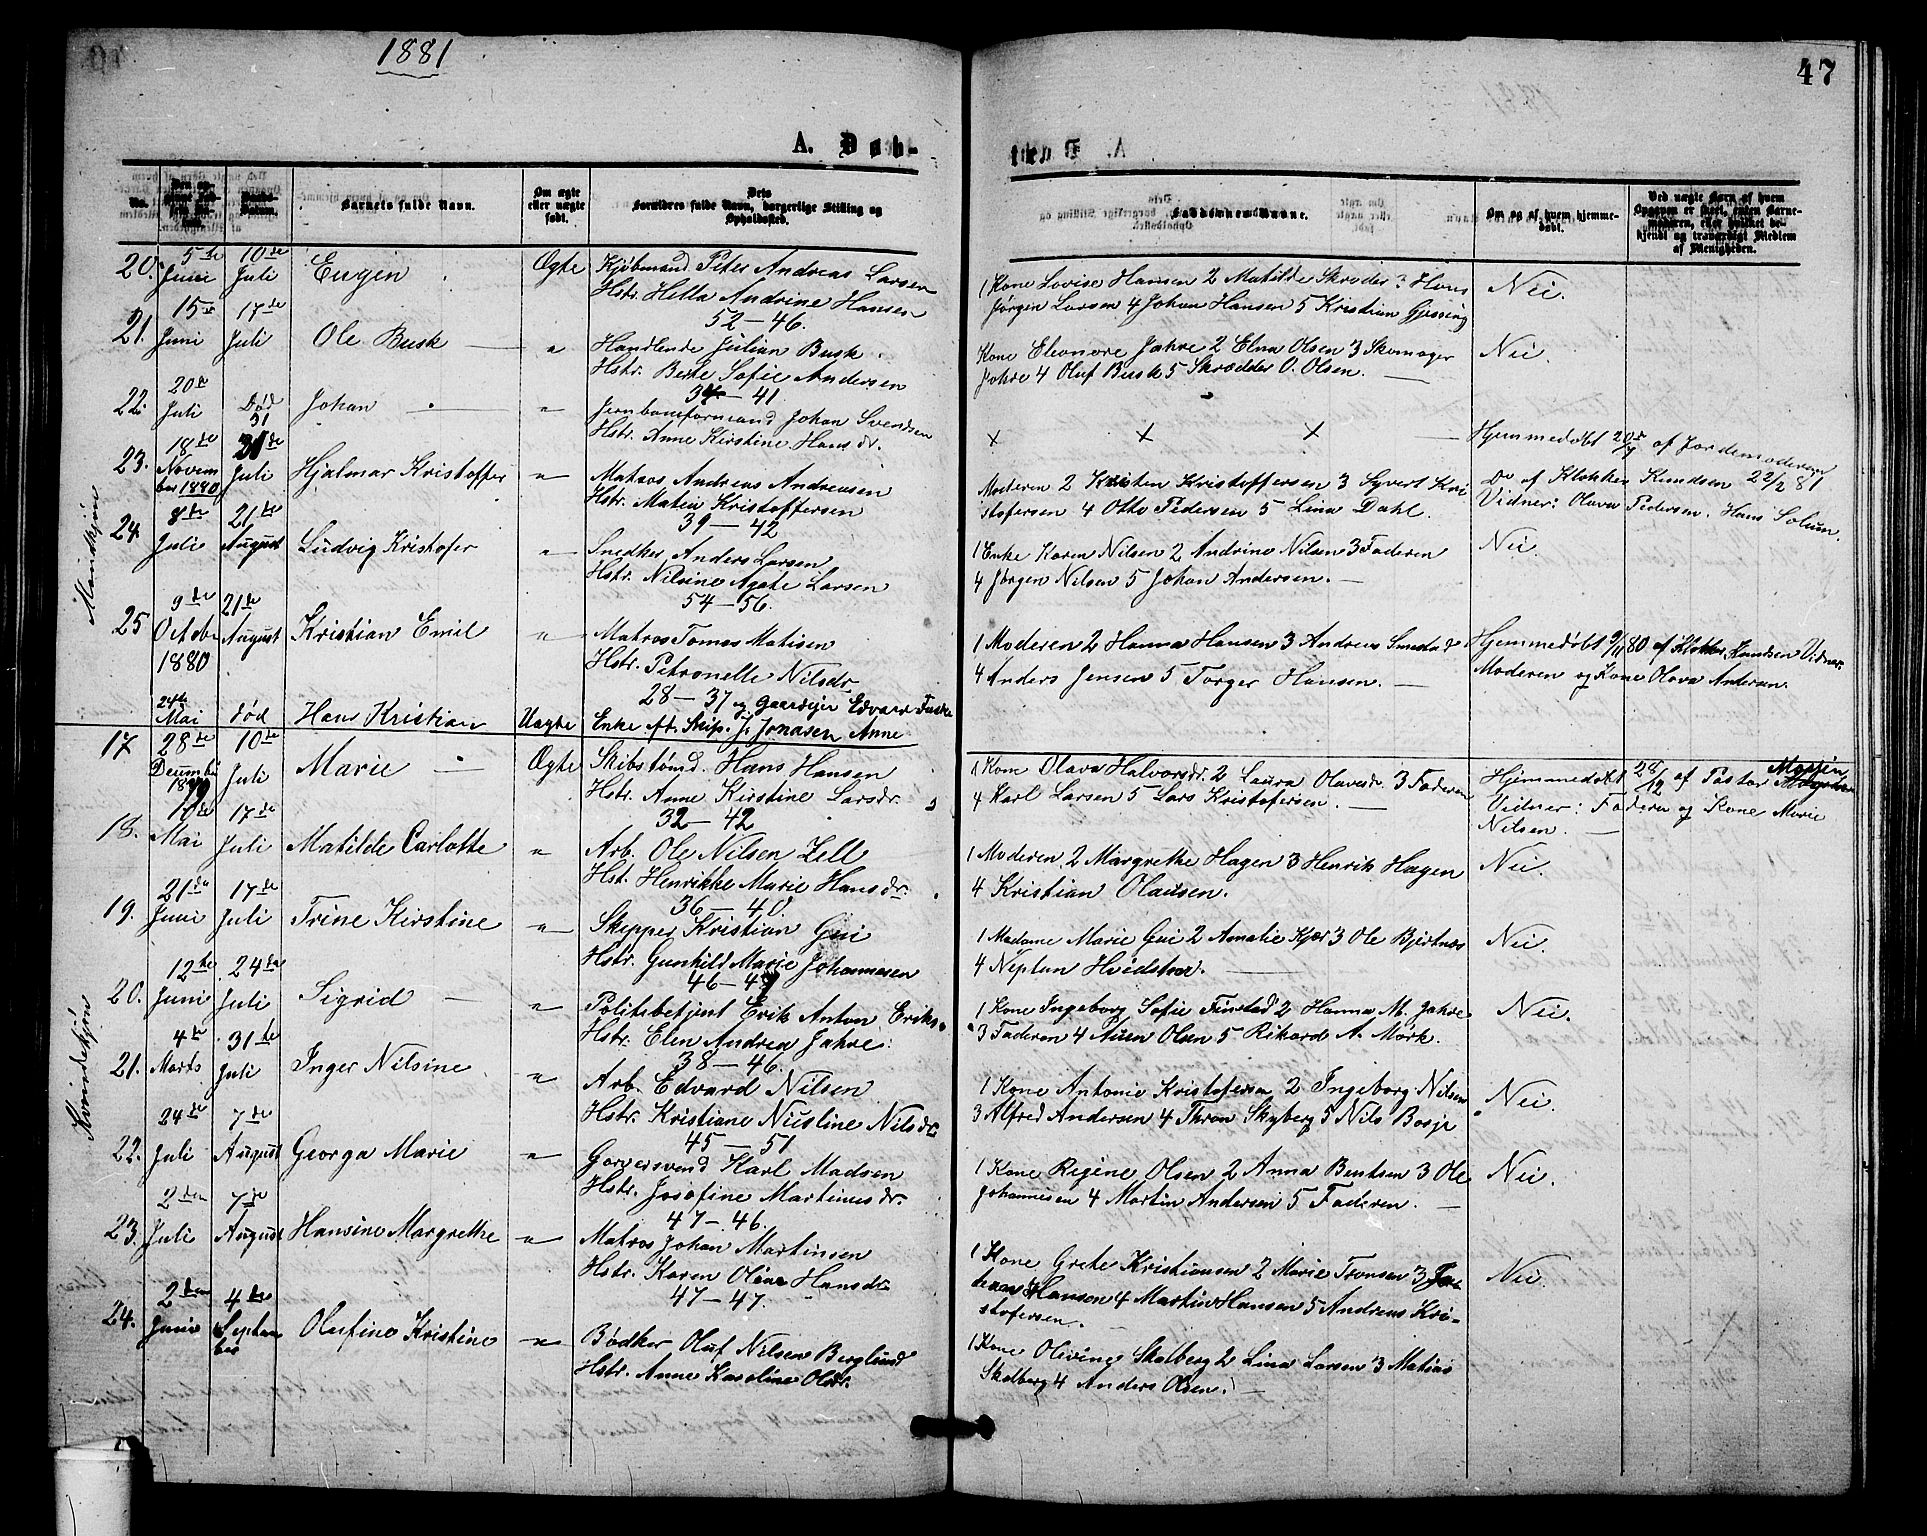 1881
47
A. Døb-
No.
Barnets fulde Navn.
Om ægte eller uægte født.
Dets Forældres fulde Navn, borgerlige Stilling og Opholdssted.
Faddernes Navne.
Om og af hvem hjemmedøbt.
Ved uægte Børn af hvem Opgaven er skeet, enten Barnemoderen, eller hvilket bekjendt og troværdigt Medlem af Menigheden.
Mandkjøn
20. 5te Juni 10de Juli Eugin Ægte Kjøbmand Peter Andreas Larsen
Hstr. Hella Andrine Hansen
52-46.
1 Kone Lovise Hansen 2 Matilde Skrøder 3 Hans
Jørgen Larsen 4 Johan Hansen 5 Kristian Gjessing
Nei.
21. 15de Juni 17de Juli Ole Busk " Handlende Julian Busk.
Hstr. Berte Sofie Andersen
34-41
Kone Eleonore Jahre 2 Elna Olsen 3 Skomager
Jahre 4 Oluf Busk 5 Skrædder O. Olsen.
Nei.
22. 20de Juli Død 31 Johan " Jernbaneformand Johan Svendsen
Hstr. Anne Kirstine Hansdr.
x x x
Hjemmedøbt 20de/7 af Jordemoderen
23. 18de November 1880 31de Juli Hjalmar Kristoffer " Matros Andreas Andreasen
Hstr. Matea Kristoffersen
39-42
Moderen 2 Kristen Kristoffersen 3 Syvert Kri
stofersen 4 Otto Pedersen 5 Lina Dahl.
Do af Klokker Knudsen 22/2 81
Vidner: Olava Pedersen. Hans Solum.
24. 8de Juli 21de August Ludvig Kristofer " Snedker Anders Larsen
Hstr. Nilsine Agate Larsen
54-56.
1 Enke Karen Nilsen 2 Andrine Nilsen 3 Faderen
4 Jørgen Nilsen 5 Johan Andersen.
Nei
25 9de Octobe 1880 21de August Kristian Emil " Matros Tomas Matisen
Hstr. Petronelle Nilsdr.
28-37
1 Moderen 2 Hanna Hansen 3 Andreas Smestad
4 Anders Jensen 5 Torger Hansen.
Hjemmedøbt 9/11 80 af Klokker Knudsen Vidner
Moderen og Kone Olava Andersen.
24de Mai død Hans Kristian Uægte Enke aft. Skip. J. Jonasen Anne
og Gaardejer Edvard Fuske
Kvindekjøn
17 28de Decembe 1879 10de Juli Marie Ægte Skibstømd. Hans Hansen
Hstr. Anne Kirstine Larsdr.
32-42
1 Kone Olava Halvorsdr. 2 Laura Olavesdr 3 Faderen
4 Karl Larsen 5 Lars Kristofersen.
Hjemmedøbt 28/12 af Pastor
Vidner: Faderen og Kone Marie
Nilsen.
18. 10de Mai 17de Juli Matilde Carlotte " Arb. Ole Nilsen Zell
Hst. Henrikke Marie Hansdr.
36-40.
1 Moderen 2 Margrethe Hagen 3 Henrik Hagen
4 Kristian Olausen.
Nei.
19. 21de Juni 17de Juli Trine Kirstine " Skipper Kristian Gui
Hstr. Gunhild Marie Johannesen
46-47
1 Madame Marie Gui 2 Amalie Kjær 3 Ole Bjertnæs
4 Neptun Hvidsten.
Nei.
20. 12te Juni 24de Juli Sigrid " Politibetjent Erik Anton Eriks.
Hstr. Elen Andrea Jahre.
38-46.
1 Kone Ingeborg Sofie Finstad 2 Hanna M. Jahre
3 Faderen 4 Auen Olsen 5 Rikard A. Mørk.
Nei.
21. 4de Marts 31te Juli Inger Nilsine " Arb. Edvard Nilsen
Hstr. Kristiane Niesline Nilsdr.
45-51
1 Kone Antonie Kristofersen 2 Ingeborg Nilsen
3 Alfred Andersen 4 Thron Skyberg 5 Nils Bosje
Nei.
22. 24de Juli 7de August Georga Marie " Garversvend Karl Madsen
Hstr. Josefine Martinusdr.
47-46.
1 Kone Regine Olsen 2 Anna Bentsen 3 Ole
Johannesen 4 Martin Andersen 5 Faderen.
Nei.
23. 2den Juli 7de August Hansine Margrethe " Matros Johan Martinsen
Hstr. Karen Oline Hansdr
47-47.
1 Kone Grete Kristiansen 2 Marie Tronsen 3 Jo-
hann Hansen 4 Martin Hansen 5 Andreas Kri-
stofersen.
Nei.
24. 2den Juni 4de September Olufine Kristine " Bødker Oluf Nilsen Berglund
Hstr. Anne Karoline Olsdr.
1 Kone Olivine Skolberg 2 Lina Larsen 3 Matias
Skolberg 4 Anders Olsen.